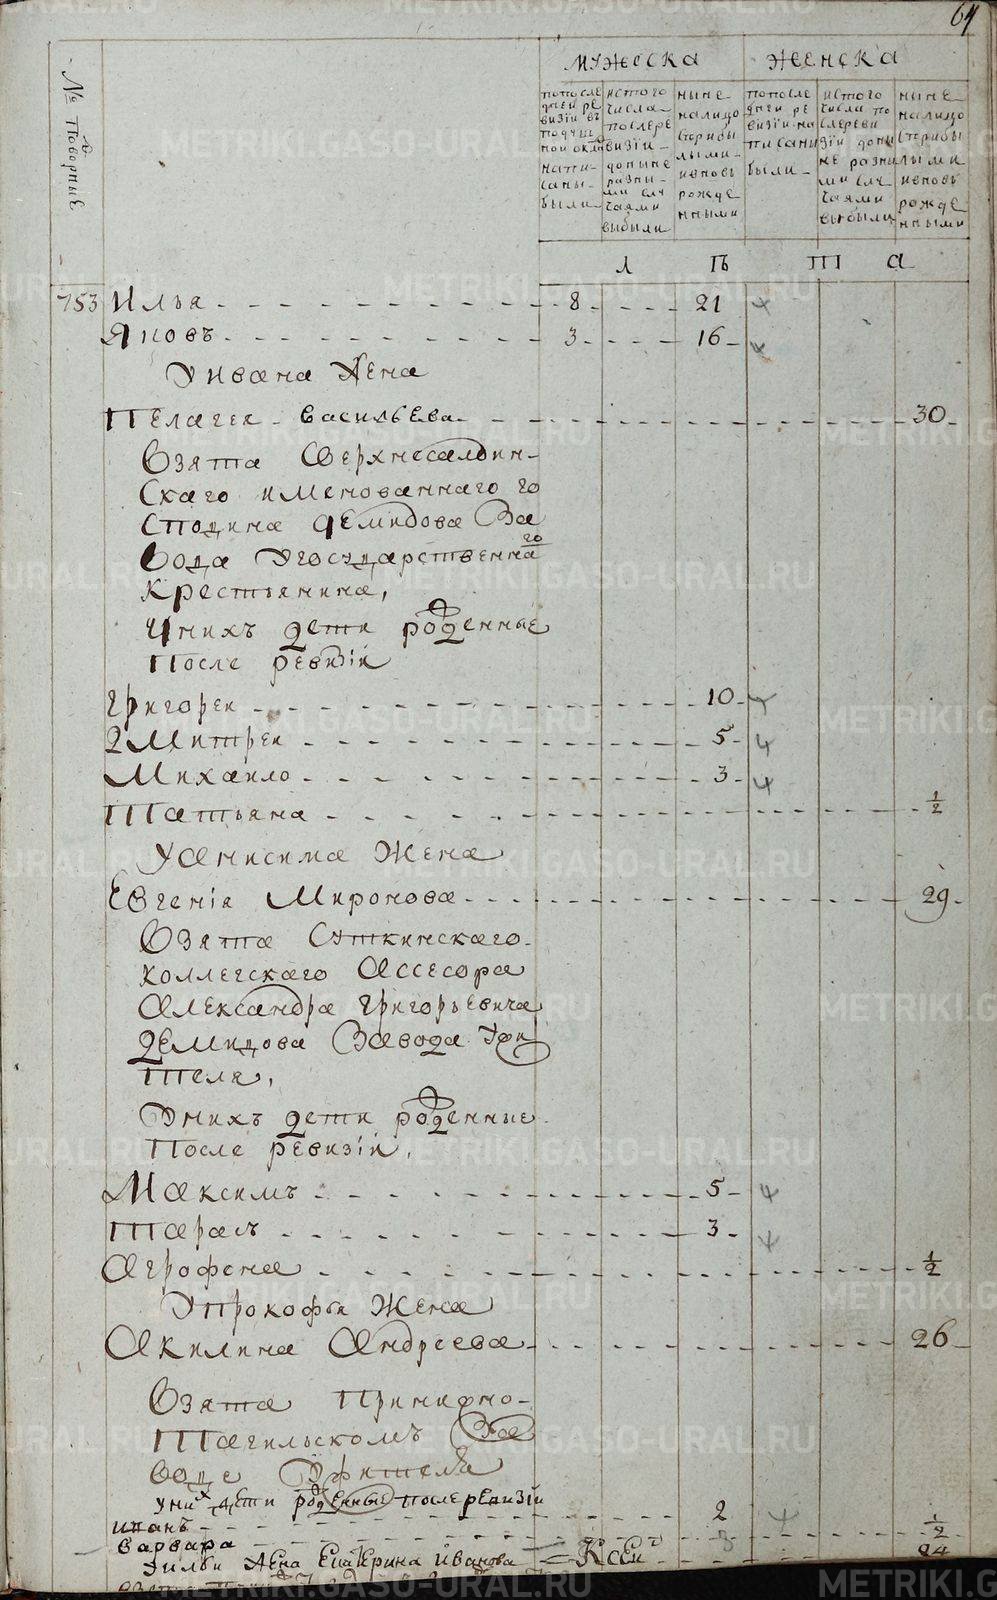 64
№ Дворовые
мужеска
женска
попосле дней ре визiи въ подушь ной окла напи саны были
истого числа послере визiи доныне разны ми слу чаями выбыли
ныне налицо сприбы лыми ивновь рожде нными
попосле дней ре визiи на писаны были
истого числа по слереви зiи доны не разны ми слу чаями выбыли
ныне налицо сприбы лыми ивновь рожде нными
л ѣ т а
153 Илья 8 21
Яковъ 3 16
Уивана жена
Пелагея Васильева 30
Взята Сверхнесалдин-
скаго именованнаго го
сподина Демидова За
вода Угосударственнаго
крестьянина,
Униихъ дети рожденные
После ревизiи
Григорей 10
Дмитрей 5
Михаило 3
Татьяна 1/2
Уанисима жена
Евгенiя Миронова 29
Взята Суткинскаго
коллегскаго Ассесора
Александра Григорьевича
Демидова Завода Ужи
теля,
Униихъ дети рожденные
После ревизiи,
Максимъ 5
Тарасъ 3
Агрофена 1/2
Упрокофья жена
Акилина Андреева 26
Взята Принижно-
Тагильскомъ За
воде Ужителя
Унихъ дети рожденные после ревизiи
Иванъ 2
Варвара 1/2
Уильи жена Екатерина Иванова 24